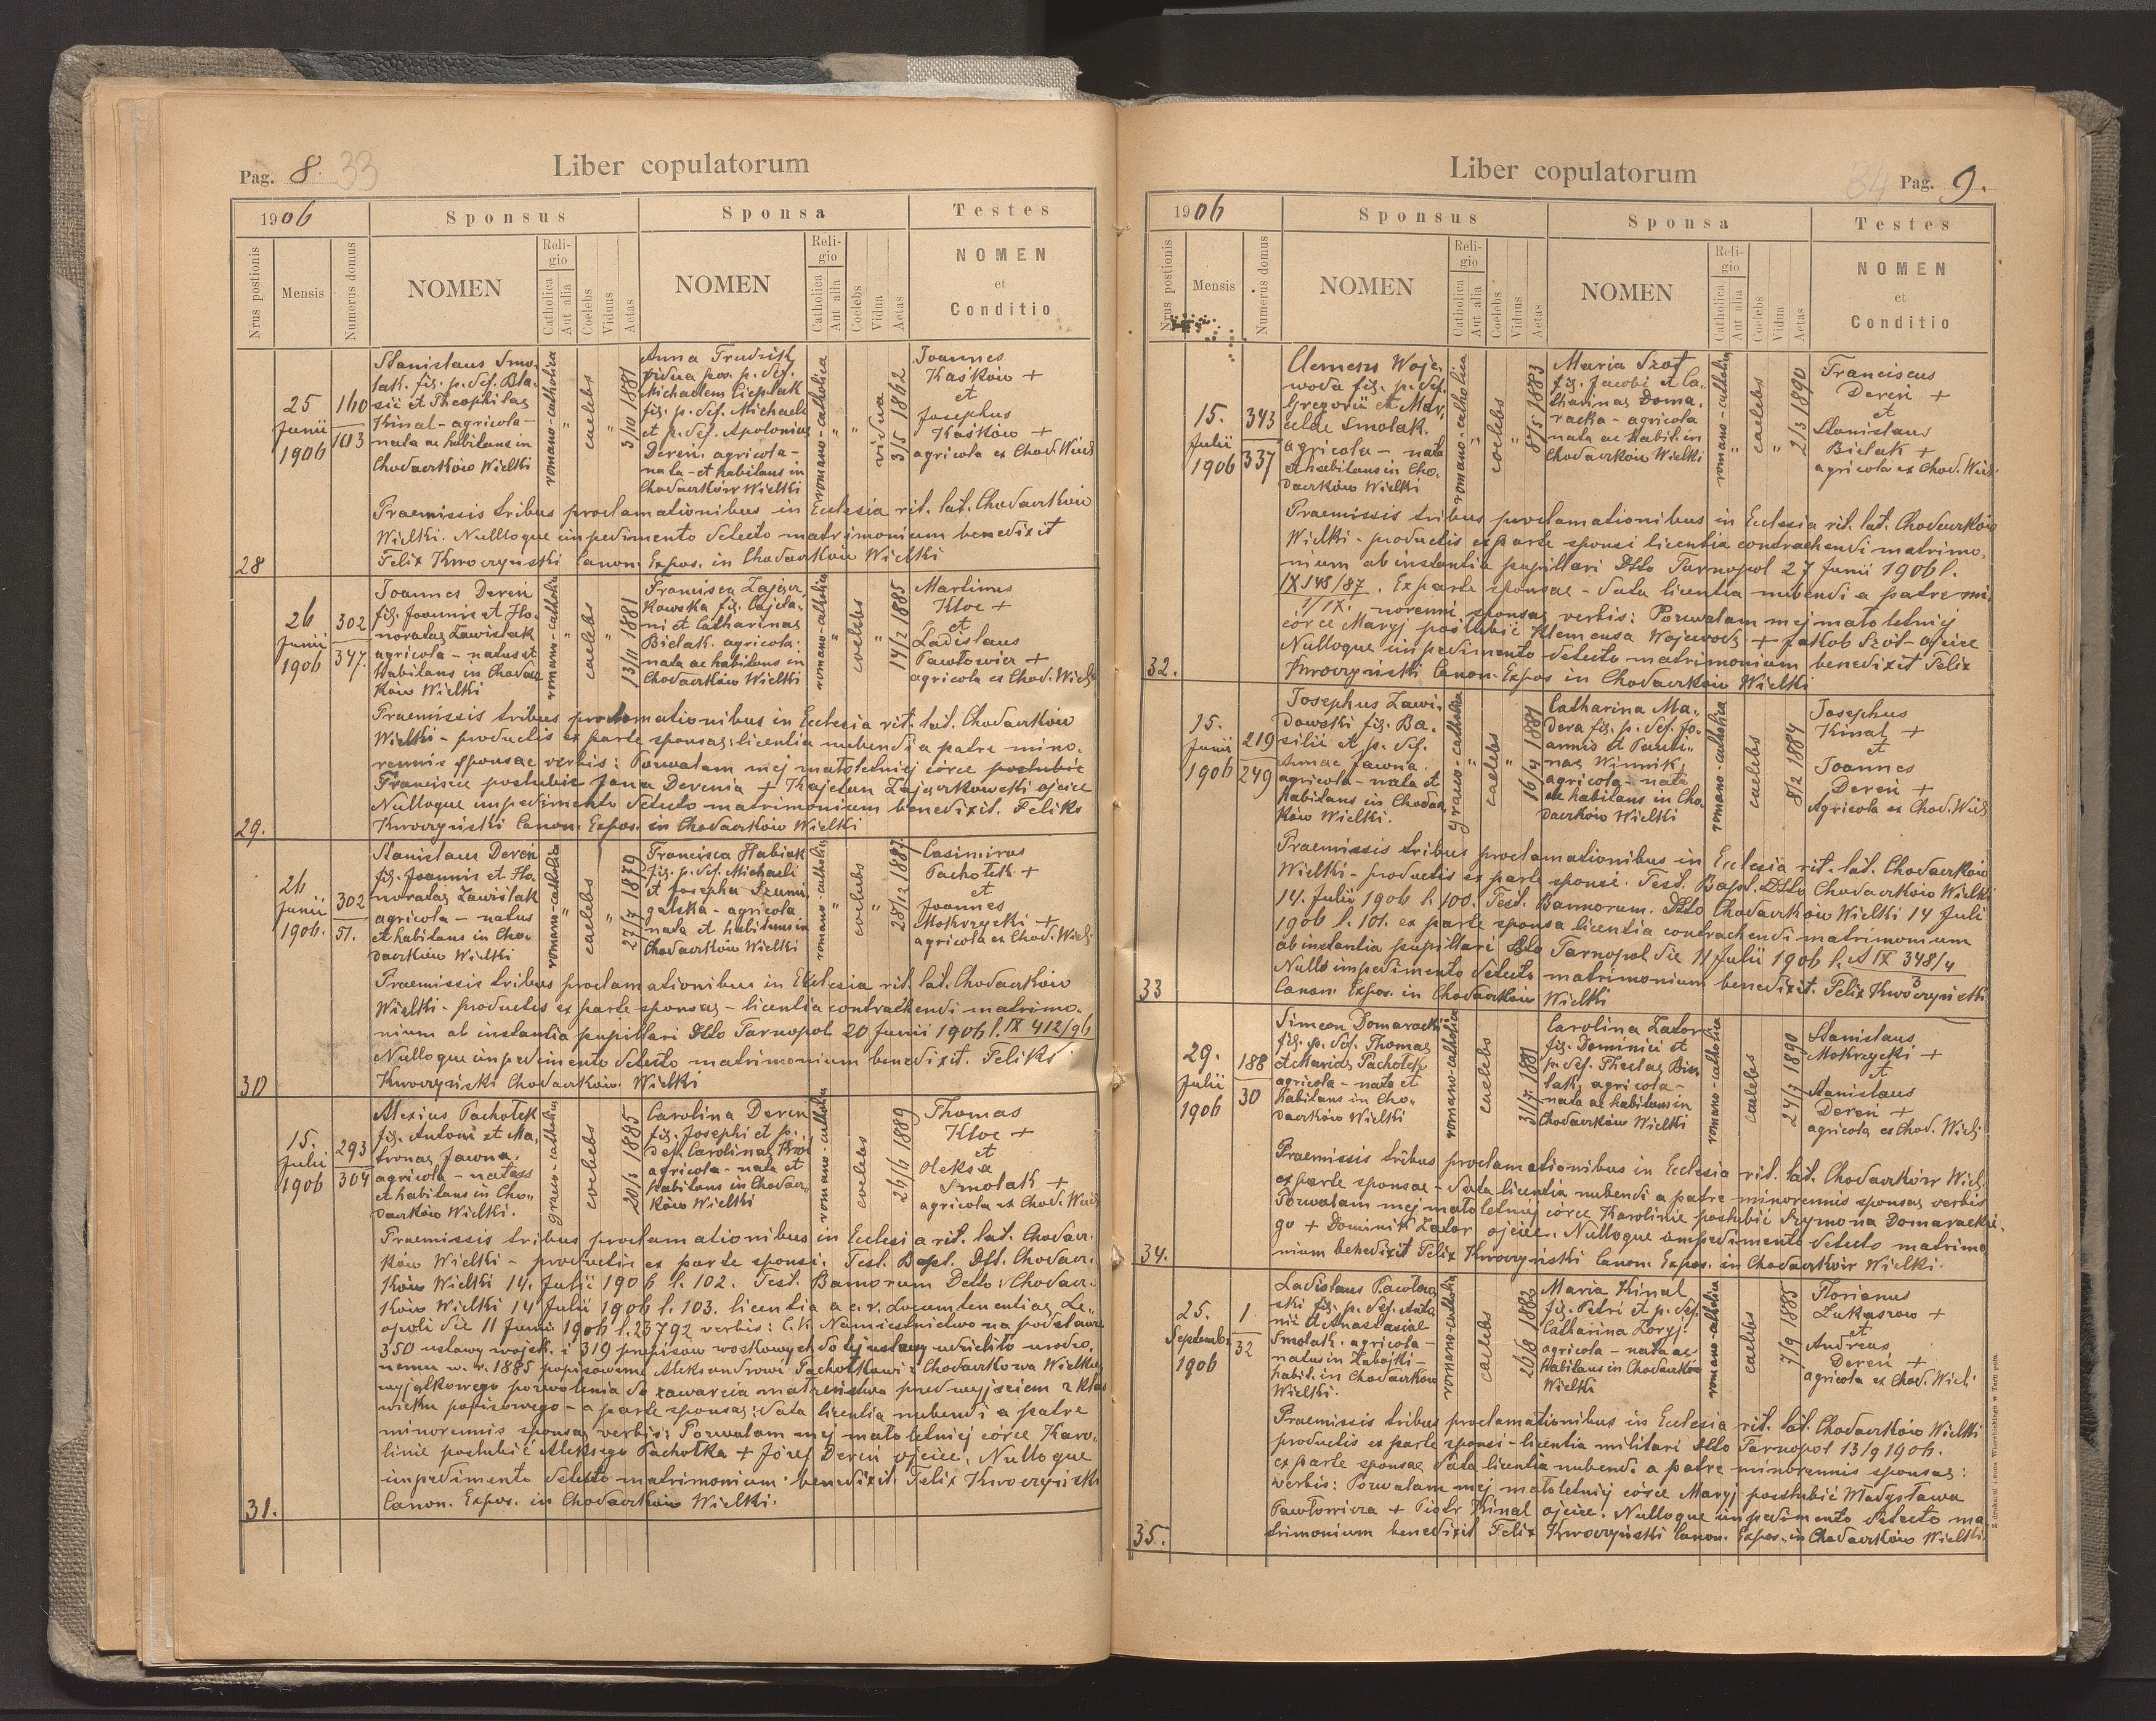 Pag. 8. 33
Liber copulatorum
1906
Sponsus
Sponsa
Testes
Nrus postionis
Mensis
Numerus domus
NOMEN
Religio
Catholica
Aut alia
Coelebs
Viduus
Aetas
NOMEN
Religio
Catholica
Aut alia
Coelebs
Vidua
Aetas
NOMEN
et
Conditio
28
25
Junii
1906
160
103
Stanislaus Smo-
lak. fiz. p. def. Bla-
sii et Theophilae
Kinal - agricola -
nata ac habitans in
Chodaczków Wielki
romano-catholica
"
caelebs
"
3/10 1881
Anna Trudzik
vidua pos. p. def.
Michaelem Cieplak
fiz. p. def. Michaeli
et p. def. Apolonias
Dereń. agricola -
nata - et habitans in
Chodaczków Wielki
romano-catholica
"
"
vidua
3/5 1862
Joannes
Kaśków +
et
Josephus
Kaśków +
agricola ex Chod. Wielk
Praemissis tribus proclamationibus in Ecclesia rit. lat. Chodaczków
Wielki. Nulloque impedimento detecto matrimonium benedixit
Felix Kwoczyński Canon. Expos. in Chodaczków Wielki
29.
26
Junii
1906
302
347.
Joannes Dereń
fiz. Joannis et Ho-
noratae Zawiślak
agricola - natus et
habitans in Chodacz
ków Wielki
romano-catholica
"
caelebs
"
13/11 1881
Francisca Zającz-
kowska fiz. Cajeta-
ni et Catharinae
Bielak. agricola.
nata ac habitans in
Chodaczków Wielki
romano-catholica
"
coelebs
"
14/2 1885
Martinus
Kloc +
et
Ladislaus
Pawłowicz +
agricola ex Chod. Wielk
Praemissis tribus proclamationibus in Ecclesia rit. lat. Chodaczków
Wielki - productis ex parte sponsae: licentia nubendi a patre mino-
rennis sponsae verbis: Pozwalam mej małoletniej córce poślubić
Francisce poślubić Jana Derenia + Kajetan Zajączkowski ojciec
Nulloque impedimento detecto matrimonium benedixit. Feliks
Kwoczyński Canon. Expos. in Chodaczków Wielki
30
26
Junii
1906.
302
51.
Stanislaus Dereń
fiz. Joannis et Ho-
noratae Zawiślak
agricola - natus
et habitans in Cho-
daczków Wielki
romano-catholica
"
caelebs
"
27/7 1879
Francisca Habiak
fiz. p. def. Michaeli
et Josepha Szumi
galska - agricola
nata et habitans in
Chodaczków Wielki
romano-catholica
"
coelebs
"
28/12 1887
Casimirus
Pachołek +
et
Joannes
Mokrzycki +
agricola ex Chod. Wielk
Praemissis tribus proclamationibus in Ecclesia rit. lat. Chodaczków
Wielki - productis ex parte sponsae - licentia contrachendi matrimo-
nium ab instantia pupillari Ddto Tarnopol 20 Junii 1906 l. IX 412/96
Nulloque impedimento detecto matrimonium benedixit. Feliks
Kwoczyński Chodaczków Wielki
31.
15.
Julii
1906
293
304
Alexius Pachołek
fiz. Antoni et Ma-
tronae Jawna.
agricola - natus
et habitans in Cho-
daczków Wielki.
graeco-catholica
coelebs
1885
Carolina Dereń
fiz. Josephi et p.
def. Carolinae
agricola - nata et
habitans in Chodacz-
ków Wielki
romano-catholica
coelebs
26/6 1889
Thomas
Kloc +
et
Oleksa
Smolak +
agricola ex Chod. Wielk
Praemissis tribus proclamationibus in Ecclesia rit. lat. Chodacz-
ków Wielki - productis ex parte sponsi. Test. Bapt. Dtt. Chodacz-
ków Wielki 14. Julii 1906 l. 102. Test. Bannorum Ddto: Chodacz-
ków Wielki 14 Julii 1906 l. 103. licentia a c. r. Locumtenentiae Le-
opoli die 11 Junii 1906 l. 23792 verbis: C. k. Namiestnictwo na podstawie
350 ustawy wojsk. i 319 przepisów wojskowych do tej ustawy udzieliło urodzo-
nemu w. r. 1885 popisowemu Aleksandrowi Pachołkowi z Chodaczkowa Wielkiego
wyjątkowego pozwolenia do zawarcia małżeństwa przed wyjściem z klas
wieku popisowego - a parte sponsae: data licentia nubendi a patre
minorennis sponsae verbis: Pozwalam mej małoletniej córce Karo-
linie poślubić Aleksego Pachołka + Józef Dereń ojciec, Nulloque
impedimento detecto matrimonium benedixit Felix Kwoczyński
Canon. Expos. in Chodaczków Wielki.
Liber copulatorum
34 Pag. 9.
1906
Sponsus
Sponsa
Testes
Nrus postionis
Mensis
Numerus domus
NOMEN
Religio
Catholica
Aut alia
Coelebs
Viduus
Aetas
NOMEN
Religio
Catholica
Aut alia
Coelebs
Vidua
Aetas
NOMEN
et
Conditio
32.
15.
Julii
1906
343
337
Clemens Woje-
woda fiz. p. def.
Gregorii et Mar.
celae Smolak.
agricola - nata
et habitans in Cho-
daczków Wielki
romano-catholica
"
coelebs
"
8/5 1883
Maria Szot
fiz. Jacobi et Ca-
tharinae Doma-
racka - agricola
nata ac habit. in
Chodaczków Wielki
romano-catholica
"
caelebs
"
2/3 1890
Franciscus
Dereń +
et
Stanislaus
Bielak +
agricola ex Chod. Wielk.
Praemissis tribus proclamationibus in Ecclesia rit. lat. Chodaczków
Wielki - productis ex parte sponsi licentia contrachendi matrimo-
nium ab instantia pupillari Ddto Tarnopol 27 Junii 1906 l.
IX 148/87. Ex parte sponsae - data licentia nubendi a patre mi-
1/IX. norenni sponsae verbis: Pozwalam mej małoletniej
córce Maryj poślubić Klemensa Wojewodę + Jakob Szot - ojciec
Nulloque impedimento detecto matrimonium benedixit Felix
Kwoczyński Canon. Expos in Chodaczków Wielki
33
15.
Junii
1906
219
249
Josephus Zawi-
dowski fiz. Ba-
silii et p. def.
Annae Jawna.
agricola - nata et
habitans in Chodacz
ków Wielki.
graeco-catholica
"
caelebs
"
16/4 1881
Catharina Ma-
dera fiz. p. def. Jo-
annis et Pauli-
nae Winnik,
agricola - nata
ac habitans in Cho
daczków Wielki
romano-catholica
caelebs
8/12 1884
Josephus
Kinal +
et
Joannes
Dereń +
Agricola ex Chod. Wielk
Praemissis tribus proclamationibus in Ecclesia rit. lat. Chodaczków
Wielki - productis ex parte sponsi. Test. Bapt. Ddto Chodaczków Wielki
14. Julii 1906 l. 100. Test. Bannorum. Ddto Chodaczków Wielki 14 Juli
1906 l. 101. ex parte sponsa licentia contrachendi matrimonium
ab instantia pupillari Ddto Tarnopol die 11 Julii 1906 l. A IX 348/4
3
Nullo impedimento detecto matrimonium benedixit. Felix Kwoczyński
Canon. Expos. in Chodaczków Wielki
34.
29.
Julii
1906
188
30
Simeon Domaracki
fiz. p. def. Thomae
et Mariae Pachołek
agricola - nata et
habitans in Cho-
daczków Wielki
romano-catholica
caelebs
31/7 1881
Carolina Zator
fiz. Dominici et
p. def. Theclae Bie-
lak, agricola -
nata ac habitans in
Chodaczków Wielki
romano-catholica
caelebs
24/7 1890
Stanislaus
Mokrzycki +
et
Stanislaus
Dereń +
agricola ex Chod. Wielk
Praemissis tribus proclamationibus in Ecclesia rit. lat. Chodaczków Wiel.
ex parte sponsae - data licentia nubendi a patre minorennis sponsae verbis
Pozwalam mej małoletniej córce Karolinie poślubić Szymona Domarackie-
go + Dominik Zator ojciec. Nulloque impedimento detecto matrimo
nium benedixit Felix Kwoczyński Canon. Expos. in Chodaczków Wielki.
35.
25.
Septembr
1906
1
32
Ladislaus Pawłow
ski fiz. p. def. Anto
nii et Anastasiae
Smolak. agricola -
natus in Zabojki -
habit. in Chodaczków
Wielki.
romano-catholica
caelebs
26/8 1882
Maria Kinal
fiz. Petri et p. def.
Catharina Zoryj.
agricola - nata ac
habitans in Chodaczków
Wielki
romano-catholica
caelebs
7/9 1885
Florianus
Łukaszow +
et
Andreas
Dereń +
agricola ex Chod. Wielk
Praemissis tribus proclamationibus in Ecclesia rit. lat. Chodaczków Wielki
productis ex parte sponsi - licentia militari Ddto Tarnopol 13/9 1906.
ex parte sponsae data licentia nubendi a patre minorennis sponsae:
verbis: Pozwalam mej małoletniej córce Maryj poślubić Władysława
Pawłowicza + Piotr Kinal ojciec. Nulloque impedimento detecto ma
trimonium benedixit Felix Kwoczyński Canon. Expos. in Chodaczków Wielki.
Z drukarni Leona Wierzbickiego w Tarnopolu.